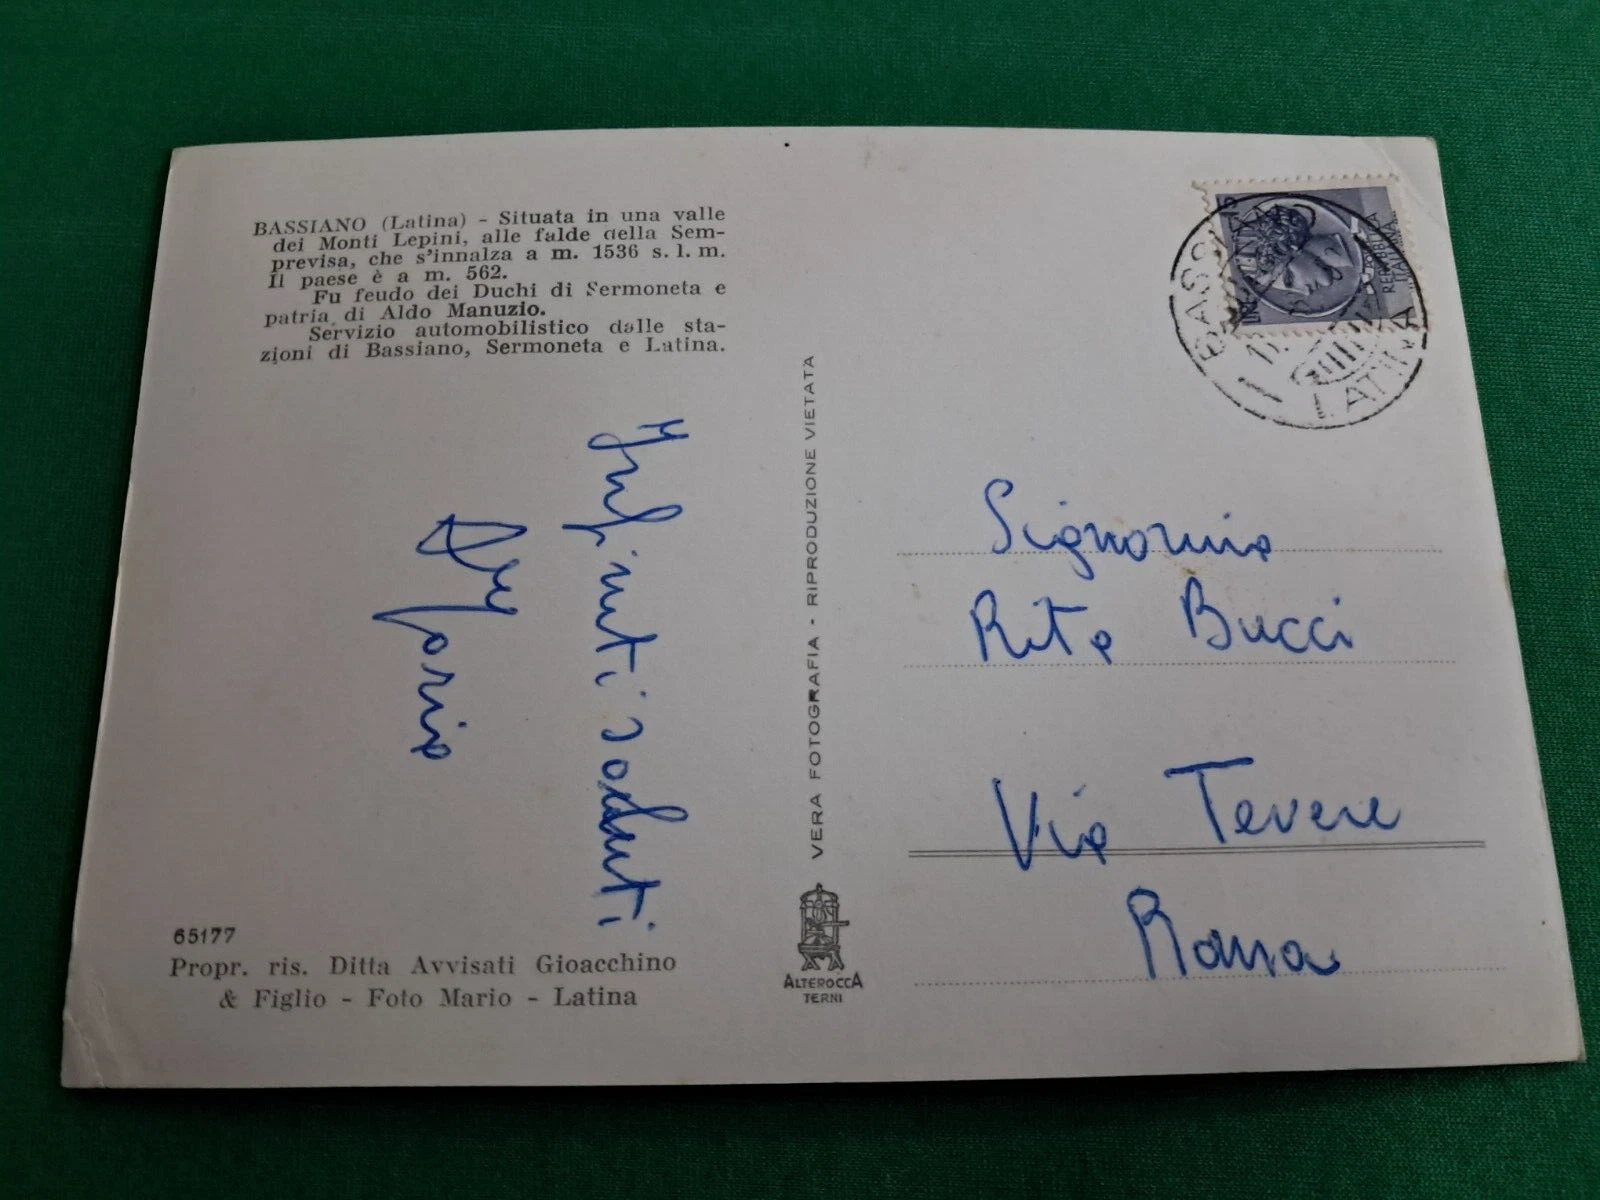 BASSIANO (Latina) - Situata in una valle
dei Monti Lepini, alle falde della Sem-
previsa, che s'innalza a m. 1536 s. l. m.
Il paese è a m. 562.
Fu feudo dei Duchi di Sermoneta e
patria di Aldo Manuzio.
Servizio automobilistico dalle sta-
zioni di Bassiano, Sermoneta e Latina.
Infiniti saluti
Maria
65177
Propr. ris. Ditta Avvisati Gioacchino
& Figlio - Foto Mario - Latina
VERA FOTOGRAFIA - RIPRODUZIONE VIETATA
ALTEROCCA
TERNI
REPUBBLICA
ITALIANA
BASSIANO
LATINA
Signorina
Rita Bucci
Via Tevere
Roma